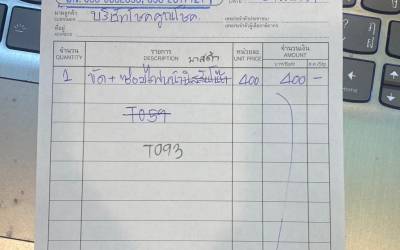 นามลูกค้า บริษัทโชคคูณโชค
CUSTOMER
ที่อยู่
ADDRESS
DATE
เลขประจำตัวประชาชน
เลขประจำตัวผู้เสียภาษีอากร
จำนวน รายการ หน่วยละ จำนวนเงิน
QUANTITY DESCRIPTION UNIT PRICE AMOUNT
มาสด้า
บาท/Baht ส.ต./Stg.
1 ขัด + ซ่อมไฟหน้า 400 400 -
T059
T093